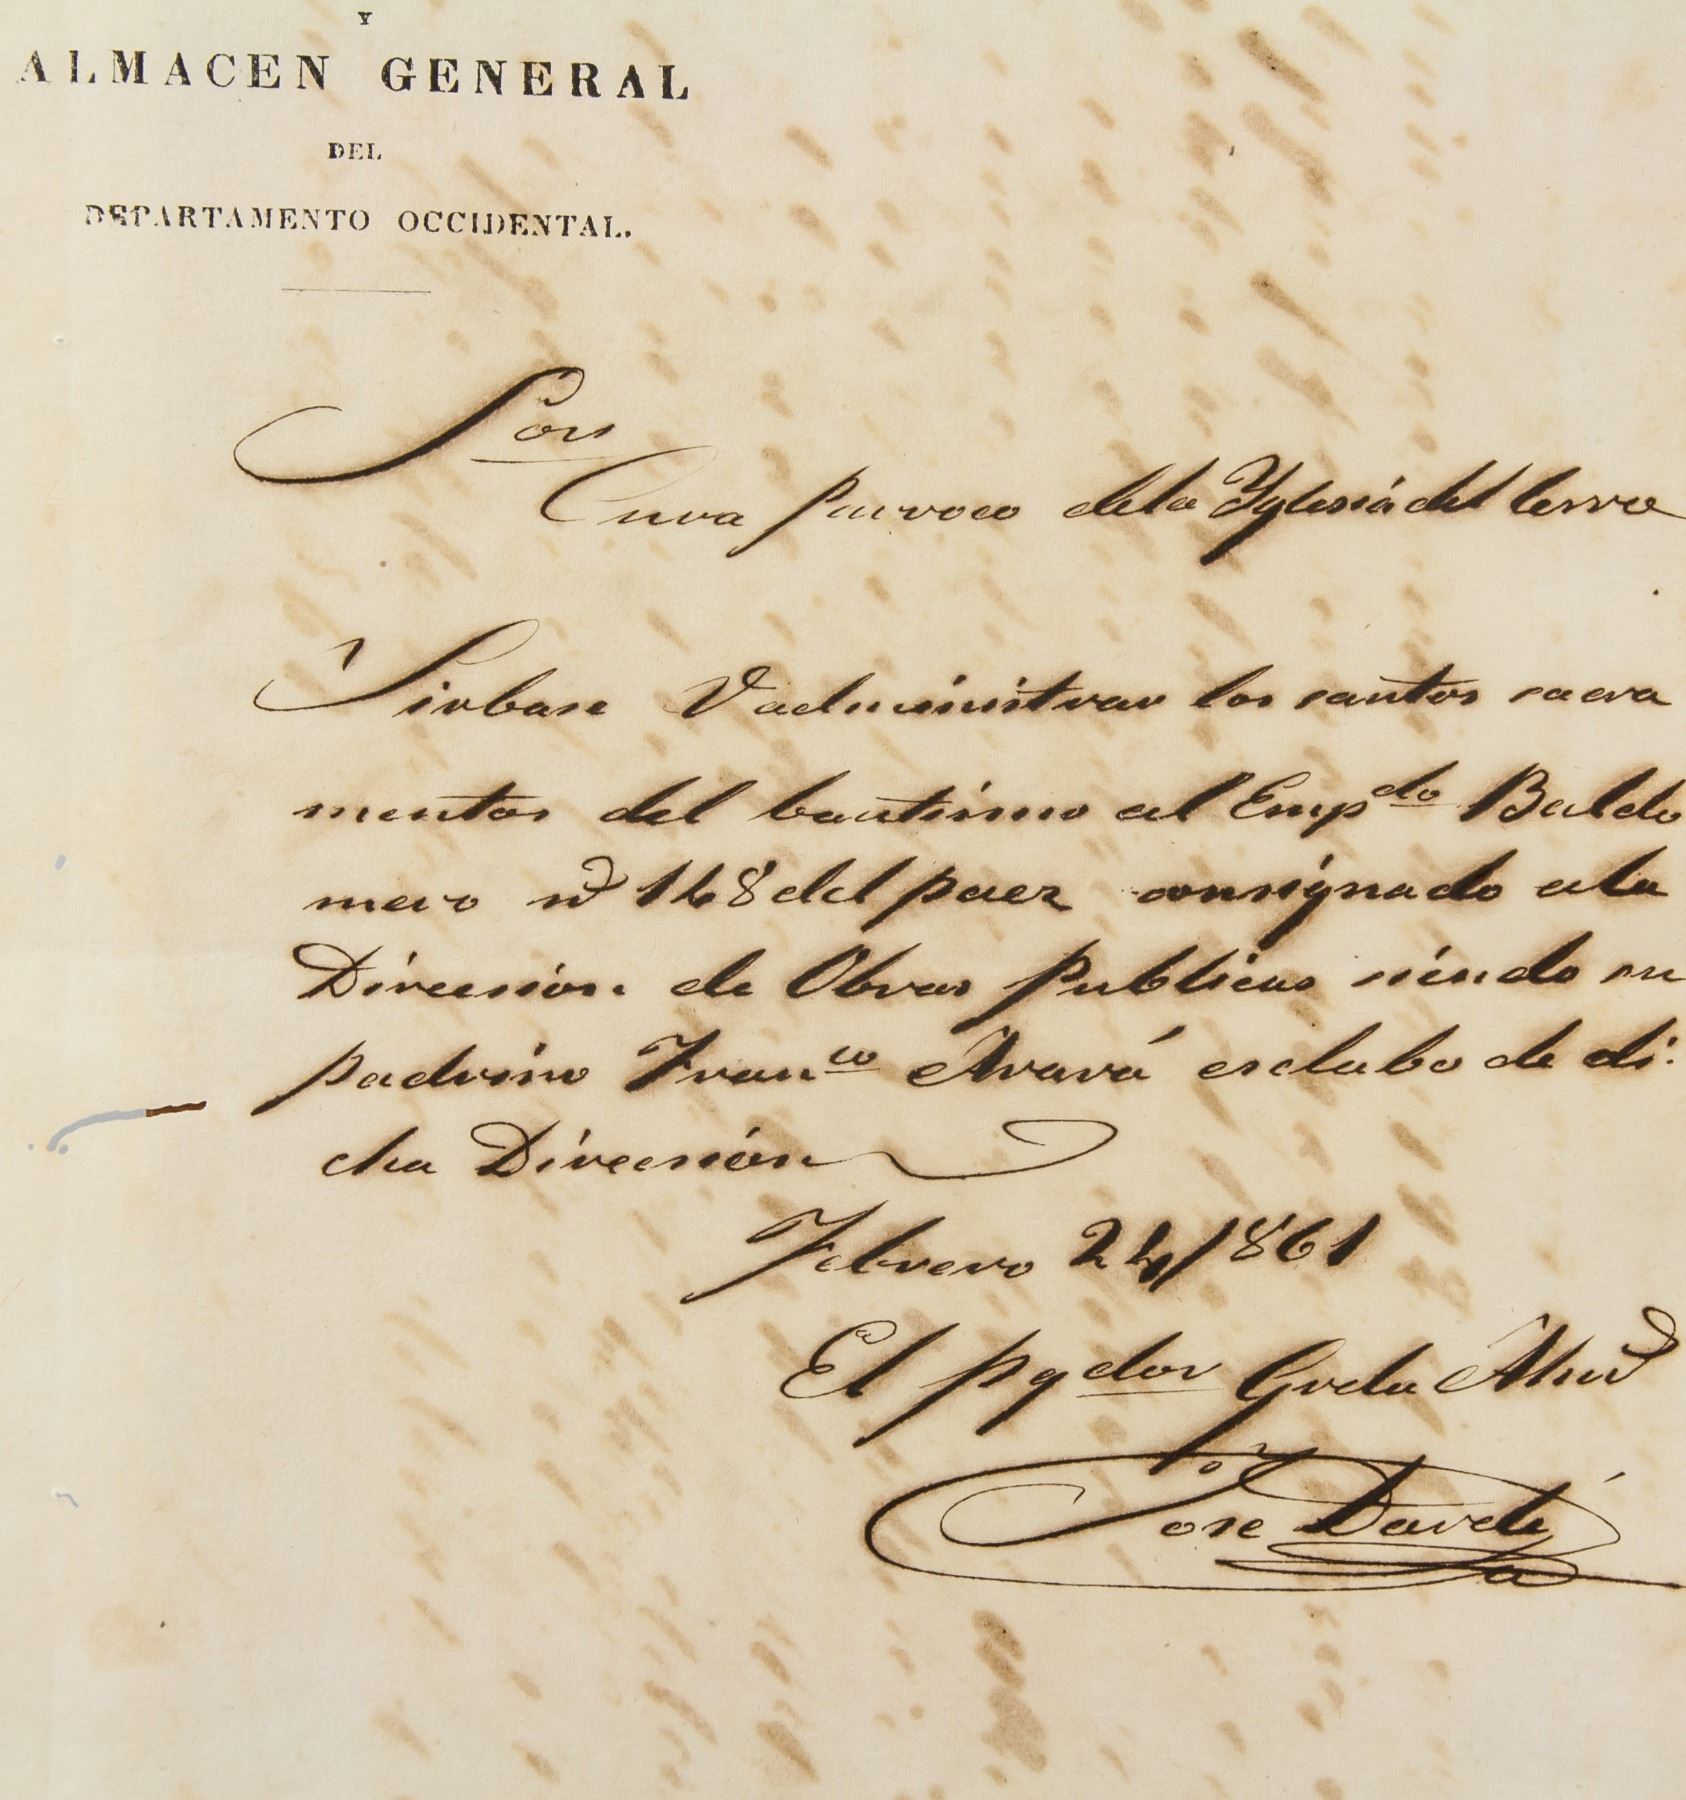 Y
ALMACEN GENERAL
DEL
DEPARTAMENTO OCCIDENTAL.
Sor
Cura parroco dela Yglesia del Cerro
Sirbase V administrar los santos sacra
mentos del bautismo al Empdo Baldo
mero no 148 del paer consignado ala
Direcsion de Obras Publicas siendo su
padrino Franco Arará esclabo de di
cha Direcsion
Febrero 24/861
El pgdor Grda Almn
Jose Dardé